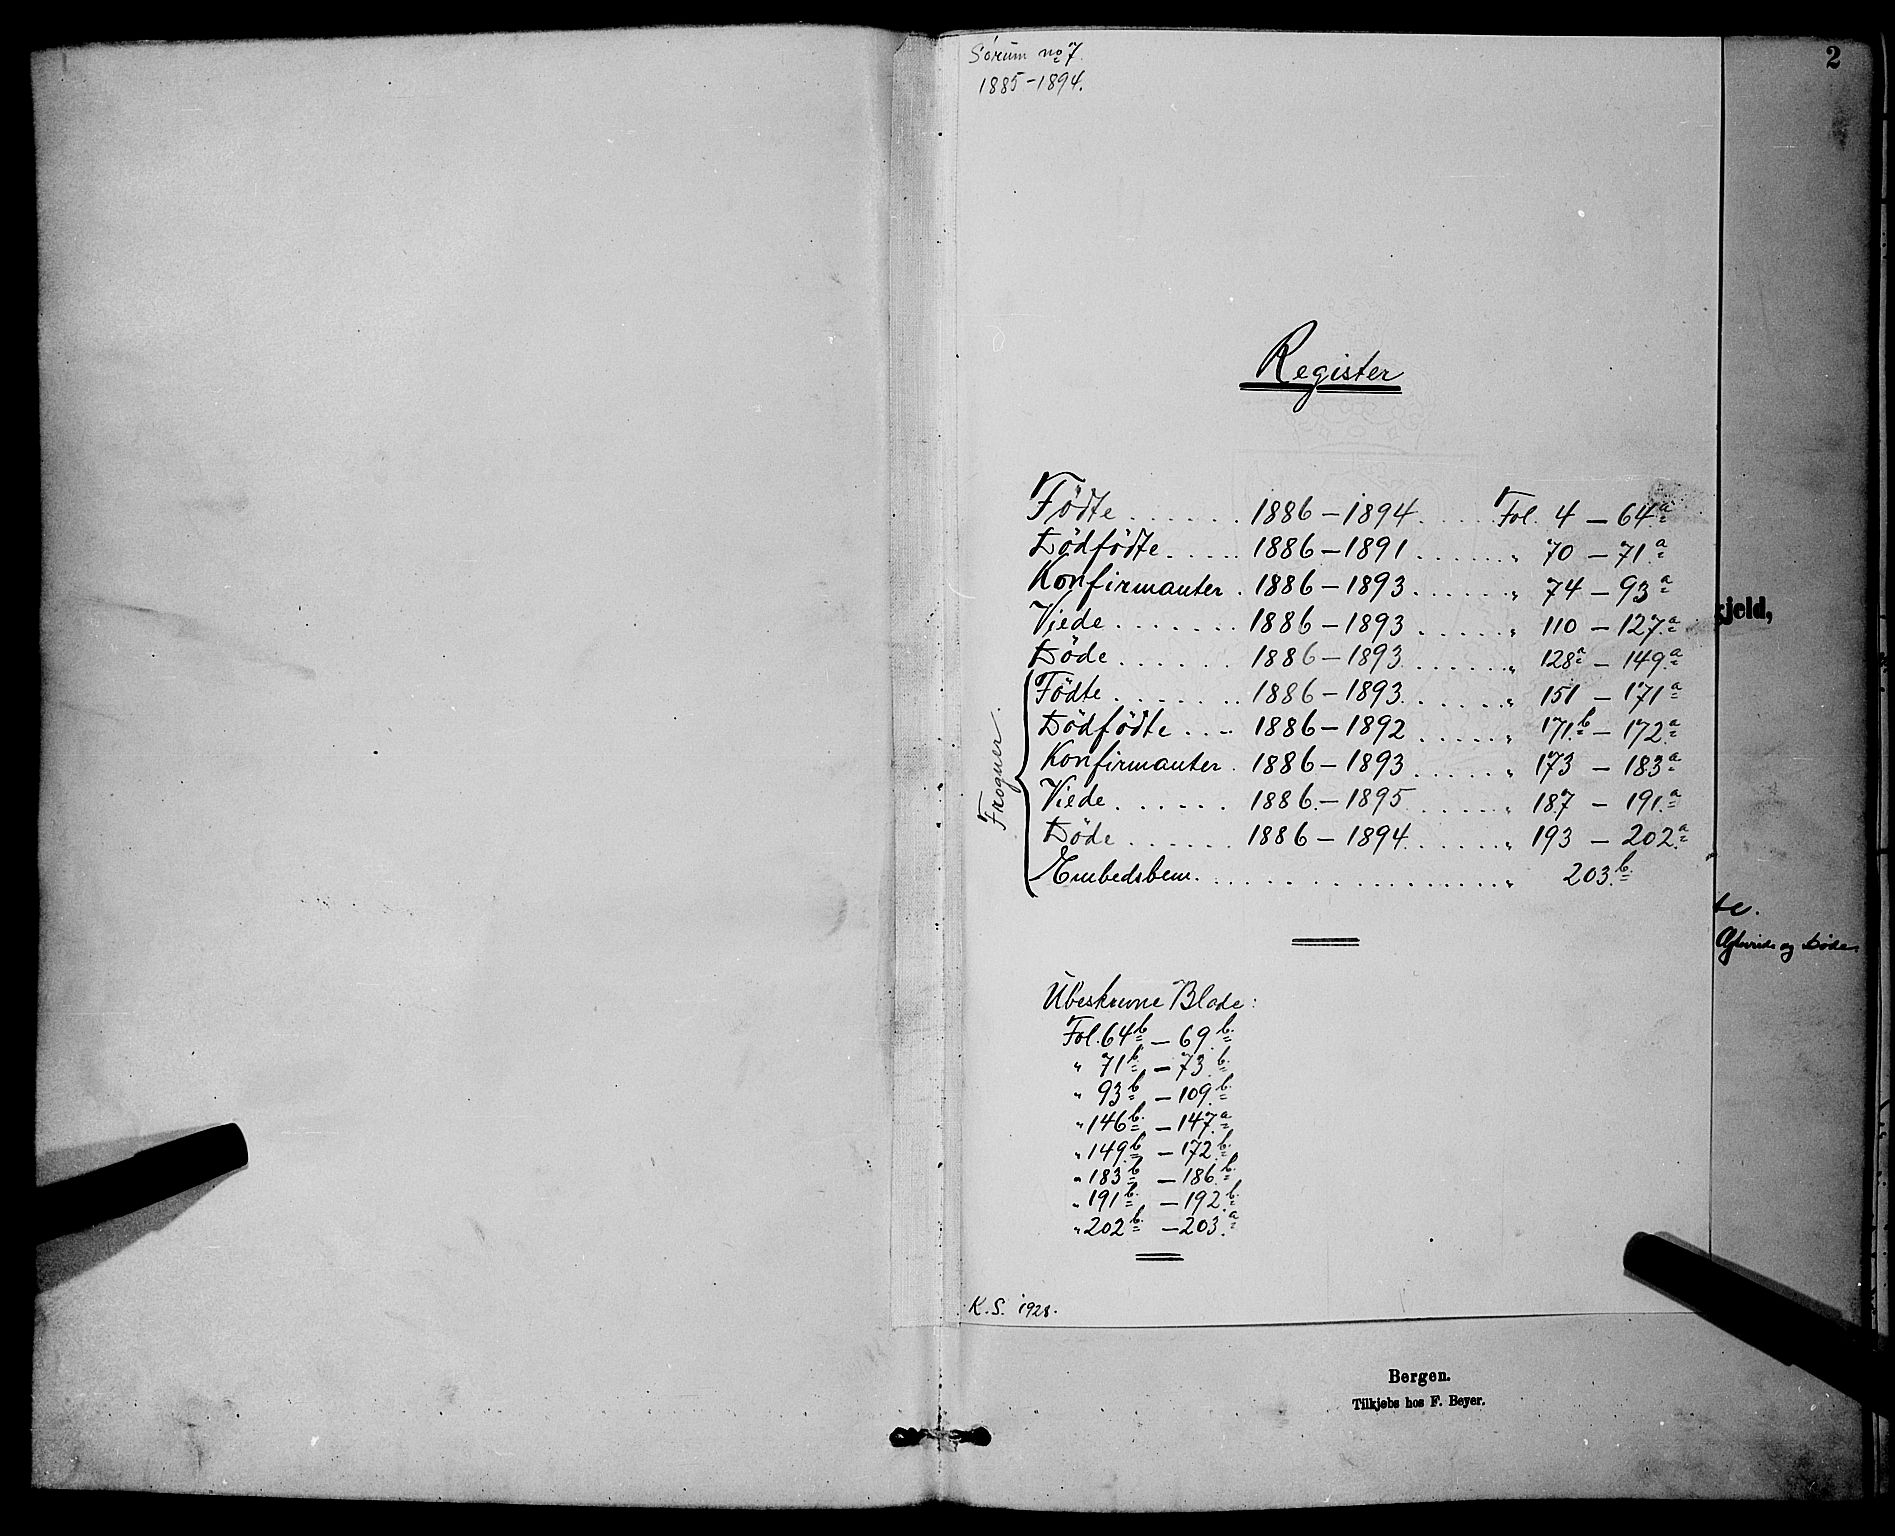 2
Sörum no 7.
1885-1894.
Register
Födte . . . . . . 1886 – 1894 . . . . . Fol. 4 – 64 a
Dödfödte . . . . . 1886 – 1891 . . . . . . „ 70 – 71 a
Konfirmanter . 1886 – 1893 . . . . . . „ 74 – 93 a
Viede . . . . . . . 1886 – 1893 . . . . . . „ 110 – 127 a
Döde . . . . . . 1886 – 1893 . . . . . . „ 128 a – 149 a
Frogner.
Födte . . . . . . . 1886 – 1893 . . . . . . „ 151 – 171 a
Dödfödte . . . 1886 – 1892 . . . . . . „ 171 b – 172 a
Konfirmanter . 1886 – 1893 . . . . . . „ 173 – 183 a
Viede . . . . . . 1886 – 1895 . . . . . . „ 187 – 191 a
Döde . . . . . . 1886 – 1894 . . . . . . „ 193 – 202 a
Embedsbem. . . . . . . . . . . . . . . . . . „ 203 b
kjeld,
te.
og Döde.
Ubeskrevne Blade:
Fol. 64 b – 69 b.
„ 71 b – 73 b.
„ 93 b – 109 b.
„ 146 b – 147 a
„ 149 b – 172 b.
„ 183 b – 186 b.
„ 191 b – 192 b.
„ 202 b – 203 a
K. S. 1928.
Bergen.
Tilkjøbs hos F. Beyer.